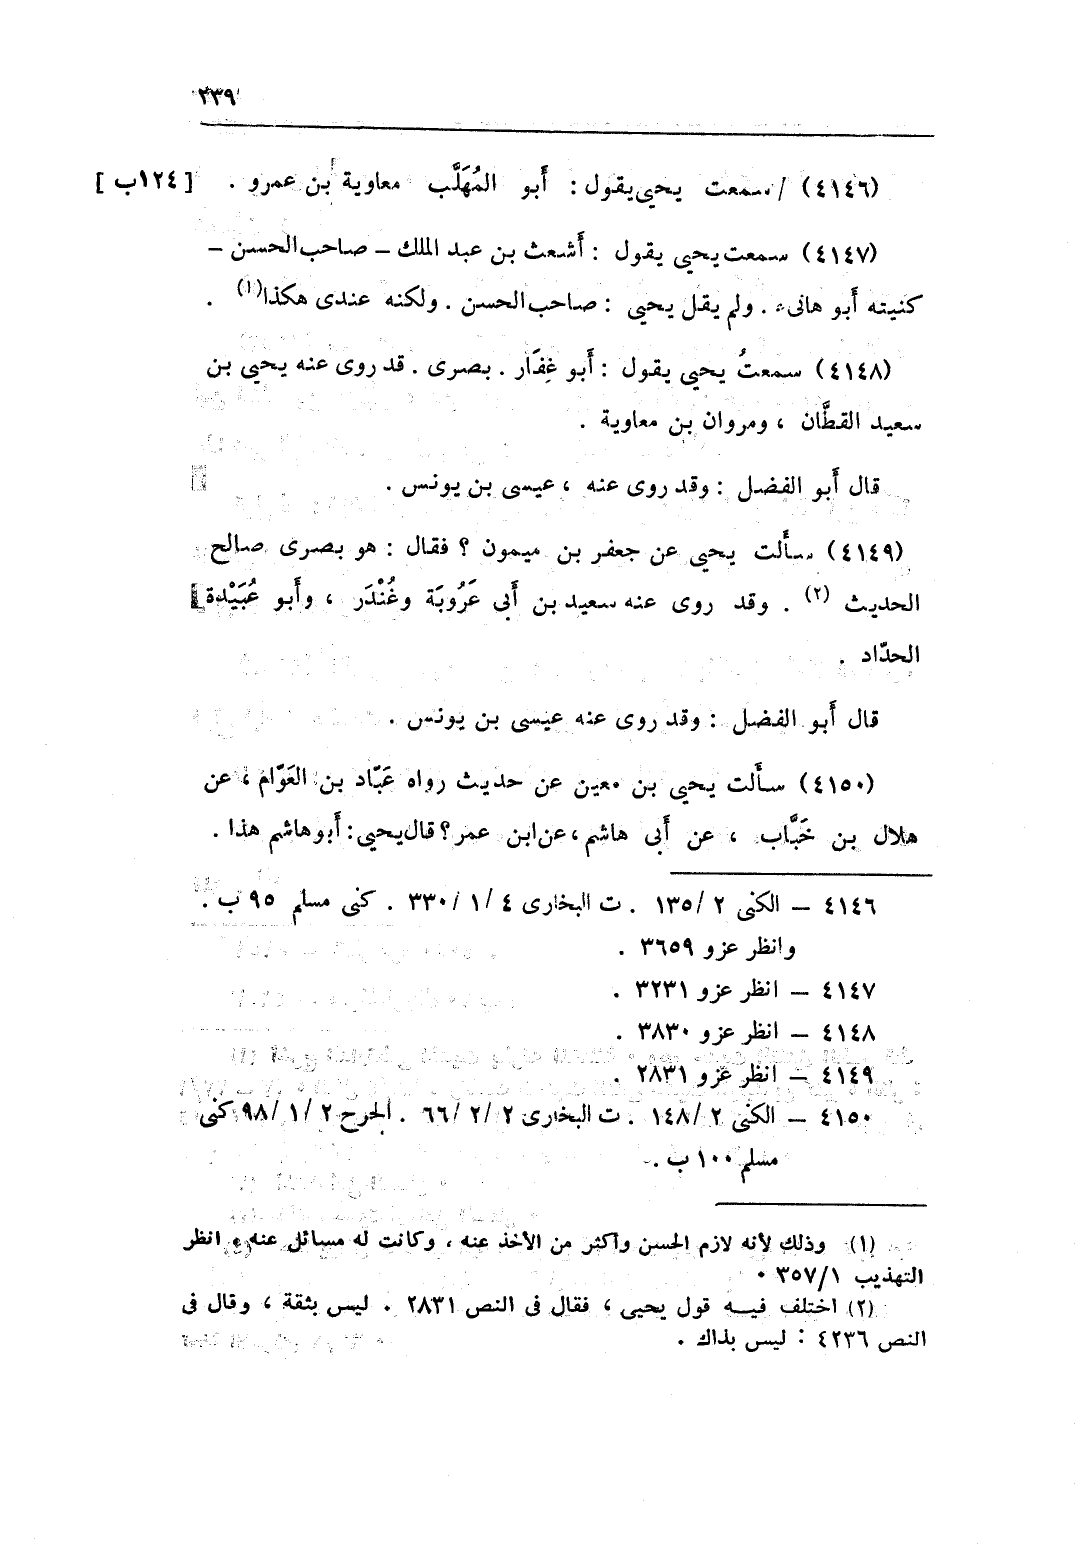 ٣٣٩
(٤١٤٦) / سمعت يحيى يقول : أَبو المُهَلَّب معاوية بن عمرو . [ ١٢٤ب ]
(٤١٤٧) سمعت يحيى يقول : أَشعث بن عبد الملك – صاحب الحسن –
كنيته أَبو هانىء . ولم يقل يحيى : صاحب الحسن . ولكنه عندى هكذا(١) .
(٤١٤٨) سمعتُ يحيى يقول : أَبو غِفَار . بصرى . قد روى عنه يحيى بن
سعيد القطَّان ، ومروان بن معاوية .
قال أَبو الفضل : وقد روى عنه ، عيسى بن يونس .
(٤١٤٩) سأَلت يحيى عن جعفر بن ميمون ؟ فقال : هو بصرى صالح
الحديث (٢) . وقد روى عنه سعيد بن أَبى عَرُوبَة وغُنْدَر ، وأَبو عُبَيْدة
الحدّاد .
قال أَبو الفضل : وقد روى عنه عيسى بن يونس .
(٤١٥٠) سأَلت يحيى بن معين عن حديث رواه عَبَّاد بن العَوّام ، عن
هلال بن خَبَّاب ، عن أَبى هاشم ، عن ابن عمر ؟ قال يحيى : أَبو هاشم هذا .
٤١٤٦ – الكنى ٢ /١٣٥ . ت البخارى ٤ /١ /٣٣٠ . كنى مسلم ٩٥ ب .
وانظر عزو ٣٦٥٩ .
٤١٤٧ – انظر عزو ٣٢٣١ .
٤١٤٨ – انظر عزو ٣٨٣٠ .
٤١٤٩ – انظر عزو ٢٨٣١ .
٤١٥٠ – الكنى ٢ /١٤٨ . ت البخارى ٢ /٢ /٦٦ . الجرح ٢ /١ /٩٨ كنى
مسلم ١٠٠ ب .
(١) وذلك لأنه لازم الحسن وأكثر من الأخذ عنه ، وكانت له مسائل عنه ، انظر
التهذيب ٣٥٧/١ .
(٢) اختلف فيه قول يحيى ، فقال فى النص ٢٨٣١ . ليس بثقة ، وقال فى
النص ٤٢٣٦ : ليس بذاك .